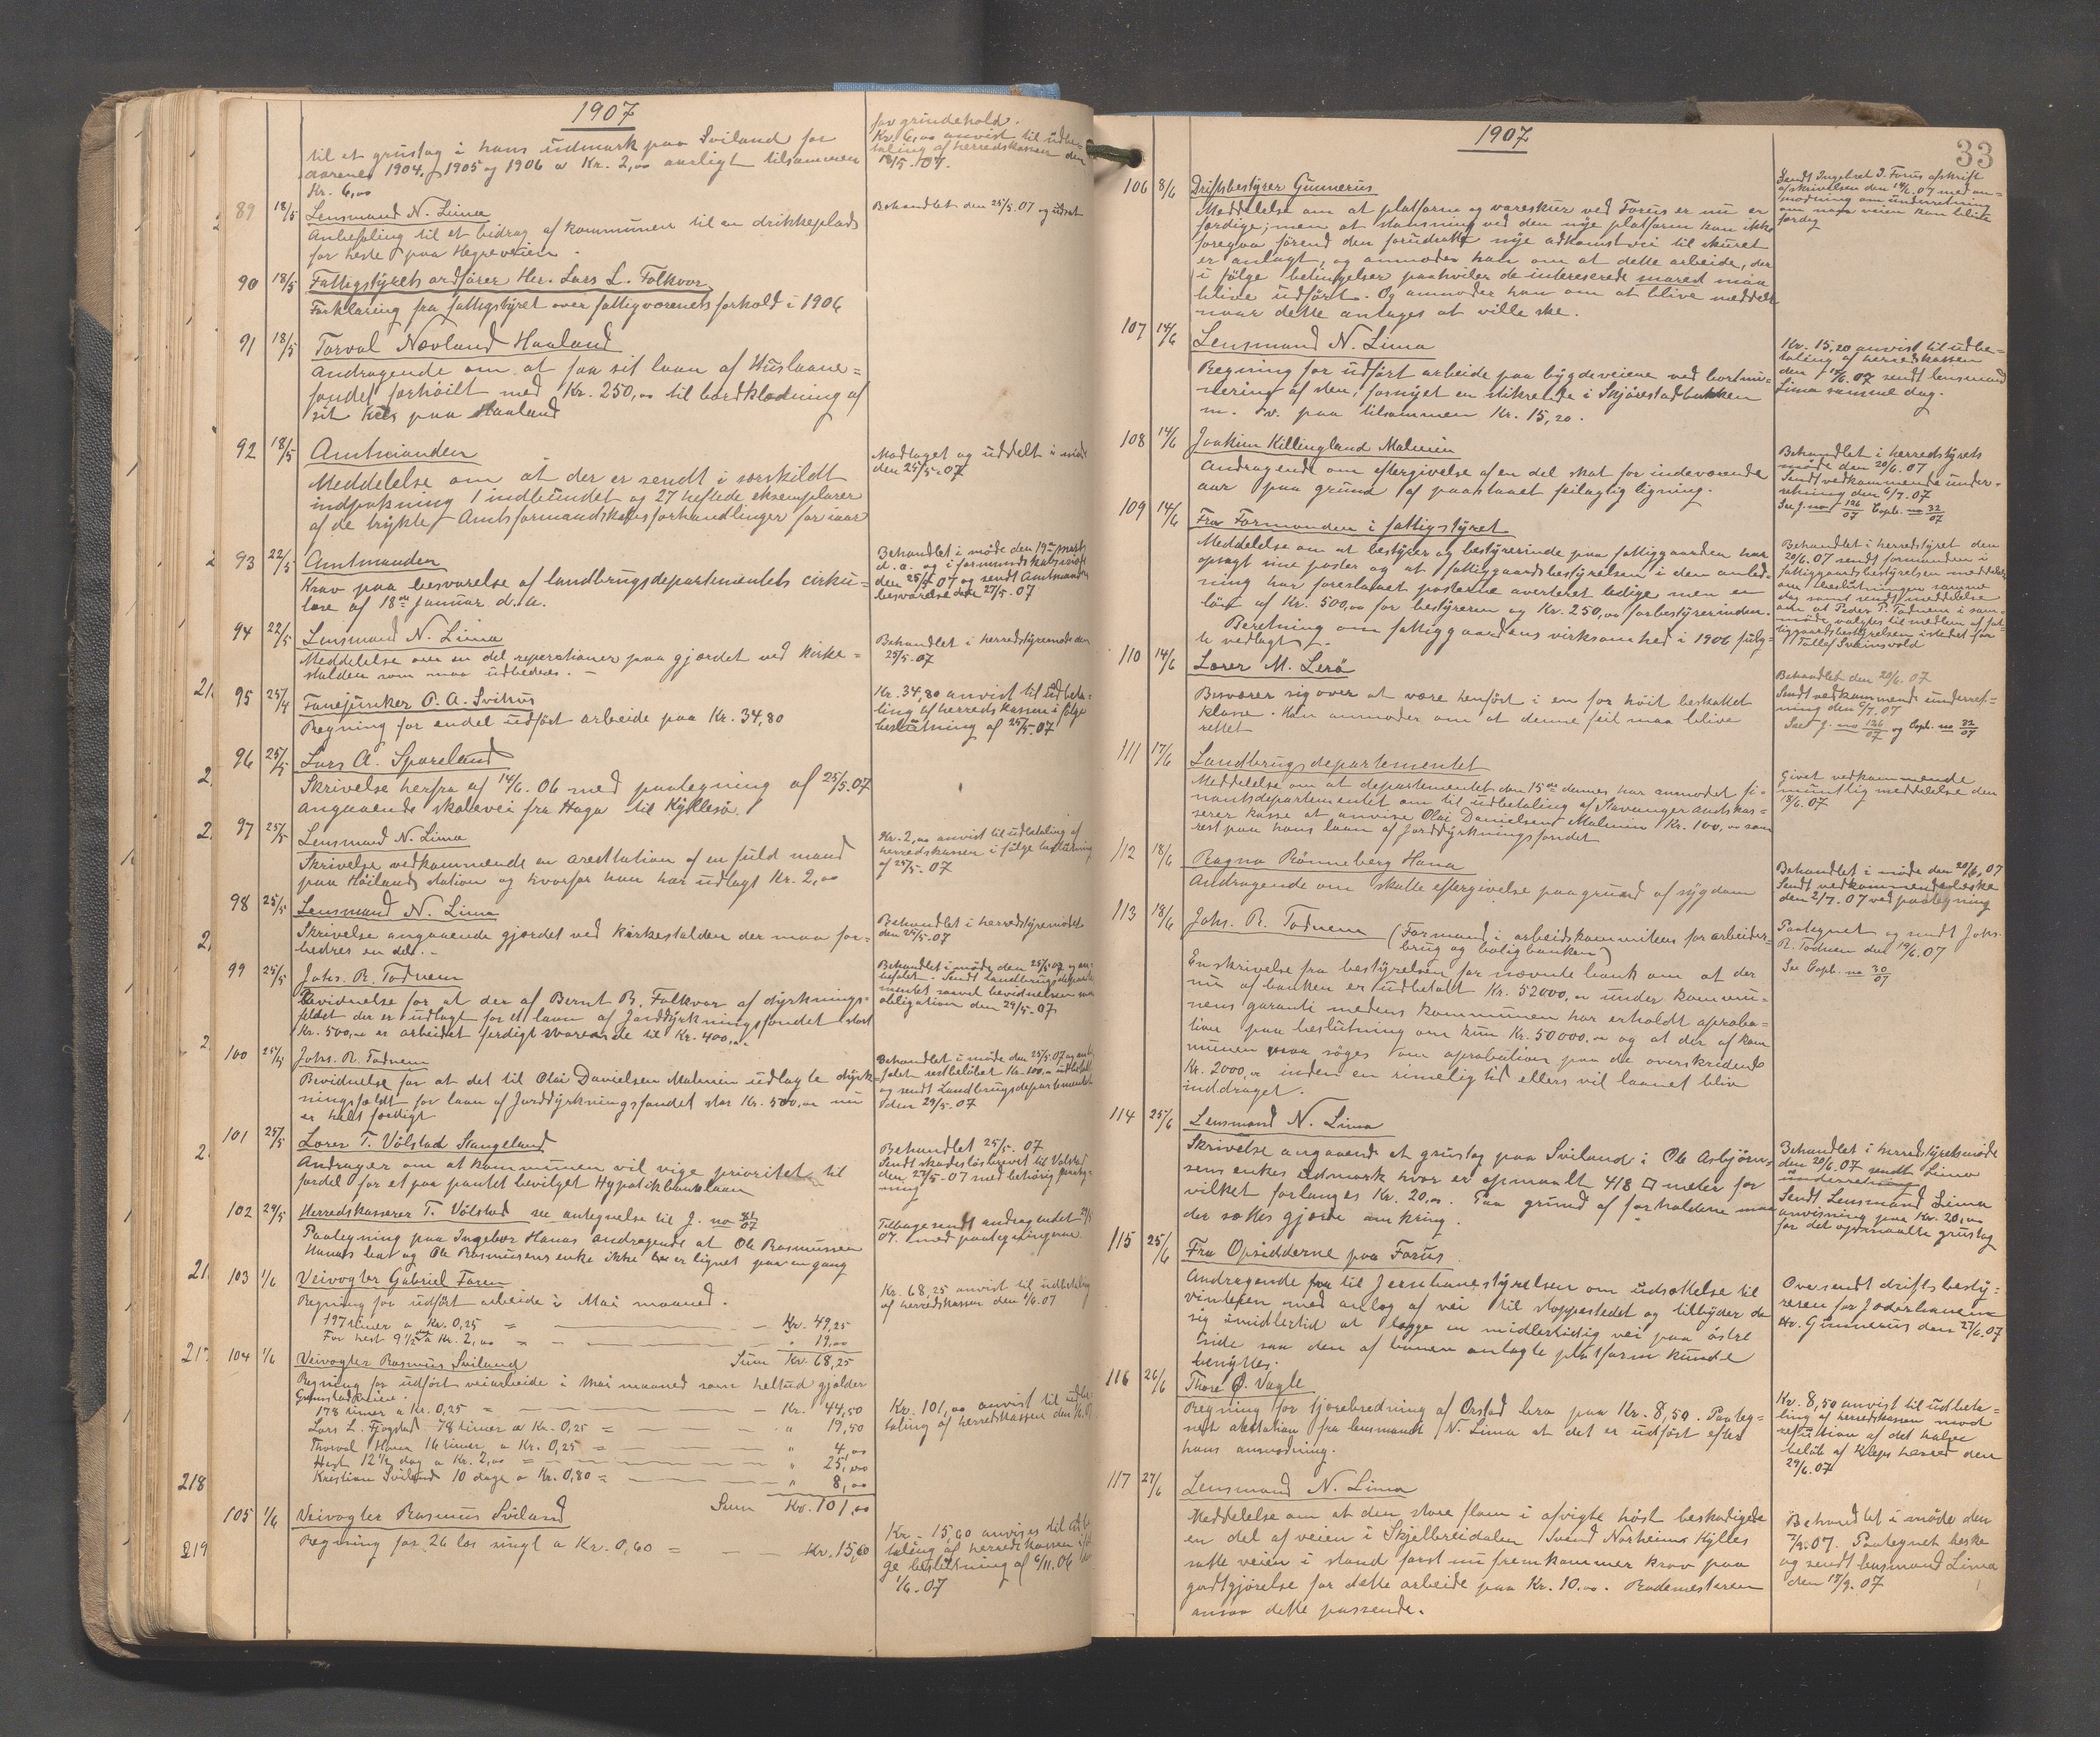 1907
til et grustag i hans udmark paa Sviland for
aarene 1904, 1905 og 1906 a Kr. 2,00 aarligt tilsammen
Kr. 6,00
for grindehold.
Kr. 6,00 anvist til udbe-
taling af herredskassen den
18/5. 07.
89 18/5 Lensmand N. Lima
Anbefaling til et bidrag af kommunen til en drikkeplads
for heste paa Hogreveien.
Behandlet den 25/5. 07 og udsat
90 18/5 Fattigstyrets ordfører Her. Lars L. Folkvor
Forklaring fra fattigstyret over fattigvæsenets forhold i 1906
91 18/5 Torval Nævland Haaland
Andragende om at faa sit laan af Huslaane=
fondet forhøiet med Kr. 250,00 til bordklædning af
sit hus paa Haaland
92 18/5 Amtmanden
Meddelelse om at der er sendt i særskildt
indpakning 1 indbundet og 27 heftede eksemplarer
af de trykte Amtsformandskabsforhandlinger for iaar
Modtaget og uddelt i møde
den 25/5. 07
93 22/5 Amtmanden
Krav paa besvarelse af landbrugsdepartementets cirku=
lære af 18de januar d. a.
Behandlet i møde den 19de marts
d. a. og i formandskabsmøde
den 25/5 07 og sendt Amtmanden
besvarelse den 27/5. 07
94 22/5 Lensmand N. Lima
Meddelelse om en del reperationer paa gjærdet ved kirke=
stalden som maa udbedres. -
Behandlet i herredstyremøde den
25/5. 07
95 25/4 Fanejunker P. A. Svihus
Regning for endel udført arbeide paa Kr. 34,80
Kr. 34,80 anvist til udbeta-
ling af herredskassen i følge
beslutning af 25/5. 07
96 25/5 Lars A. Spareland
Skrivelse herfra af 14/6. 06 med paategning af 25/5. 07
angaaende skolevei fra Haga til Kyllesø.
97 25/5 Lensmand N. Lima
Skrivelse vedkommende en arestation af en fuld mand
paa Høiland station og hvorfor han har udlagt Kr. 2,00
Kr. 2,00 anvist til udbetaling af
herredskassen i følge beslutning
af 25/5. 07
98 25/5 Lensmand N. Lima
Skrivelse angaaende gjærdet ved kirkestalden der maa for=
bedres en del. -
Behandlet i herredstyremøde
den 25/5. 07
99 25/5 Johs. R. Todnem
Bevidnelse for at der af Bernt B. Folkvor af dyrknings-
feldet der er udlagt for et laan af Jorddyrkningsfondet stort
Kr. 500,00 er arbeidet ferdigt svarende til Kr. 400,00.
Behandlet i møde den 25/5 07 og an-
befalet. Sendt Landbrugsdeparte
mentet saavel bevidnelsen som
obligation den 29/5. 07
100 25/5 Johs. R. Todnem
Bevidnelse for at det til Olai Danielsen Malmin udlagte dyrk=
ningsfeldt for laan af Jorddyrkningsfondet stor Kr. 500,00 nu
er helt færdigt
Behandlet i møde den 25/5. 07 og anbe
falet restbeløbet Kr. 100,00 udbetalt
og sendt Landbrugsdepartementet
den 29/5. 07
101 25/5 Lærer T. Vølstad Stangeland
Andrager om at kommunen vil vige prioritet til
fordel for et paa pantet bevilget Hypotikbanklaan
Behandlet 25/5. 07
Sendt skadesløsbrevet til Vølstad
den 27/5. 07 med behørig paateg-
ning
102 29/5 Herredskasserer T. Vølstad se antegnelse til J. no 81/07
Paategning paa Ingebor Hanas andragende at Ole Rasmussen
Hanas bea og Ole Rasmussens enke ikke er lignet paa en gang
Tilbagesendt andragendet 29/5
07. med paategningerne
103 1/6 Veivogter Gabriel Foren
Regning for udført arbeide i Mai maaned.
197 timer a Kr. 0,25 = — — Kr. 49,25
For hest 9 1/2 dag a Kr. 2,00 = — — " 19,00
Sum Kr. 68,25
Kr. 68,25 anvist til udbetaling
af herredskassen den 1/6. 07
104 1/6 Veivogter Rasmus Sviland
Regning for udført veiarbeide i Mai maaned som heltud gjælder
Gramstadveien.
178 timer a Kr. 0,25 = — — Kr. 44,50
Lars L. Fjogstad 78 timer a Kr. 0,25 = — — " 19,50
Thorval Hana 16 timer a Kr. 0,25 = — — " 4,00
Hest 12 1/2 dag a Kr. 2,00 = — — " 25,00
Kristian Sviland 10 dage a Kr. 0,80 = — — " 8,00
Sum Kr. 101,00
Kr. 101,00 anvist til udbe-
taling af herredskassen den 1/6. 07
105 1/6 Veivogter Rasmus Sviland
Regning for 26 læs singl a Kr. 0,60 = — — Kr. 15,60
Kr. 15,60 anvises til udbe
taling af herredskassen iføl
ge beslutning af 6/11. 06
1/6. 07
218
219
1907
33
106 8/6 Driftsbestyrer Gunnerus
Meddelelse om at platform og vareskur ved Forus er nu er
færdige; men at stansning ved den nye platform kan ikke
foregaa førend den forudsatte nye adkomstvei til skuret
er anlagt, og anmoder han om at dette arbeide, der
i følge betingelser paahviler de intereserede snarest maa
blive udført. Og anmoder han om at blive meddelt
naar dette antages at ville ske.
Sendt Ingebret I. Forus afskrift
af skrivelsen den 14/6. 07 med an=
modning om underretning
om naar veien kan blive
færdig
107 14/6 Lensmand N. Lima
Regning for udført arbeide paa bygdeveiene ved bortmi-
nering af sten, fornyet en stikrende i Skjærestadbakken
m. v. paa tilsammen Kr. 15,20.
Kr. 15,20 anvist til udbe=
taling af herredskassen
den 14/6. 07 sendt lensmand
Lima samme dag.
108 14/6 Joakim Killingland Malmin
Andragende om eftergivelse af en del skat for indeværende
aar paa grund af paastaaet feilagtig ligning.
Behandlet i herredstyrets
møde den 20/6. 07
Sendt vedkommende under-
retning den 6/7. 07
Se j. no 126/07 Copb. no 32/07
109 14/6 Fra Formanden i fattigstyret
Meddelelse om at bestyrer og bestyrerinde paa fattiggaarden har
opsagt sine poster og at fattiggaardsbestyrelsen i den anled-
ning har foreslaaet posterne averteret ledige men en
løn af Kr. 500,00 for bestyreren og Kr. 250,00 for bestyrerinden.
Beretning om fattiggaardens virksomhed i 1906 fulg-
te vedlagt.
Behandlet i herredstyret den
20/6. 07 sendt formanden i
fattiggaardsbestyrelsen meddelelse
om beslutningen samme
dag samt sendt meddelelse
om at Peder P. Todnem i sam-
møde valgtes til medlem af fat-
tiggaardsbestyrelsen istedet for
Tollef Svainsvold
110 14/6 Lærer M. Lerø
Besværer sig over at være henført i en for høit beskattet
klasse. Han anmoder om at denne feil maa blive
rettet
Behandlet den 20/6. 07
Sendt vedkommende underret-
ning den 6/7. 07
Se j. no 126/07 og Copb. no 32/07
111 17/6 Landbrugsdepartementet
Meddelelse om at departementet den 15de dennes har anmodet fi-
nantsdepartementet om til udbetaling af Stavanger amtskas-
serer kasse at anvise Olai Danielsen Malmin Kr. 100,00 som
rest paa hans laan af jorddyrkningsfondet
Givet vedkommende
mundtlig meddelelse den
18/6. 07
112 18/6 Ragna Rønneberg Hana
Andragende om skatte eftergivelse paa grund af sygdom
Behandlet i møde den 20/6. 07
Sendt vedkommende
den 2/7. 07 ved paategning
113 18/6 Johs. R. Todnem (Formand i arbeidskommiteen for arbeider-
brug og boligbanken)
En skrivelse fra bestyrelsen for nævnte bank om at der
nu af banken er udbetalt Kr. 52000,00 under kommu-
nens garanti medens kommunen har erholdt aproba=
tion paa beslutning om kun Kr. 50000,00 og at der af kom
munen maa søges om aprobation paa de overskridende
Kr. 2000,00 inden en rimelig tid ellers vil laanet blive
inddraget.
Paategnet og sendt Johs.
R. Todnem den 19/6. 07
Se Copb. no 30/07
114 25/6 Lensmand N. Lima
Skrivelse angaaende et grustag paa Sviland i Ole Asbjørn-
sens enkes udmark hvor er opmaalt 418 □ meter for
vilket forlanges Kr. 20,00. Paa grund af forholdene maa
der sættes gjærde omkring.
Behandlet i herredstyrets møde
den 20/6. 07 sendt Lima
underretning
Sendt Lensmand Lima
anvisning paa Kr. 20,00
for det opmaalte grustag
115 25/6 Fra Opsidderne paa Forus.
Andragende fra til Jernbanestyrelsen om udsættelse til
vinteren med anlæg af vei til stoppestedet og tilbyder de
sig imidlertid at lægge en midlertidig vei paa østre
side saa den af banen anlagte platform kunde
benyttes.
Oversendt driftsbesty=
reren for Jæderbanen
Hr. Gunnerus den 27/6. 07
116 26/6 Thore O. Vagle
Regning for tjørebredning af Orstad bro paa Kr. 8,50. Paateg=
net atestation fra lensmand N. Lima at det er udført efter
hans anmodning.
Kr. 8,50 anvist til udbeta=
ling af herredskassen mod
refution af det halve
beløb af Kleps herred den
29/6. 07
117 27/6 Lensmand N. Lima
Meddelelse om at den store flom i afvigte høst beskadigede
en del af veien i Skjelbreidalen Svend Norheims Kylles
satte veien i stand først nu fremkommer krav paa
godtgjørelse for dette arbeide paa Kr. 10.00. Rodemesteren
ansaa dette passende.
Behandlet i møde den
7/9. 07. Paategnet
og sendt lensmand Lima
den 17/9. 07